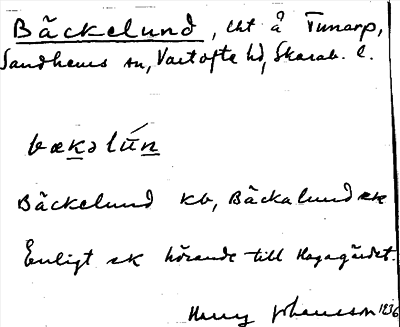 Bäckelund, lht å Tunarp,
Sandhems sn, Vartofte hd, Skarab. l.
bækəlún
Bäckelund kb, Bäckalund ek
Enligt ek hörande till Hagagärdet.
Harry Johansson 1936